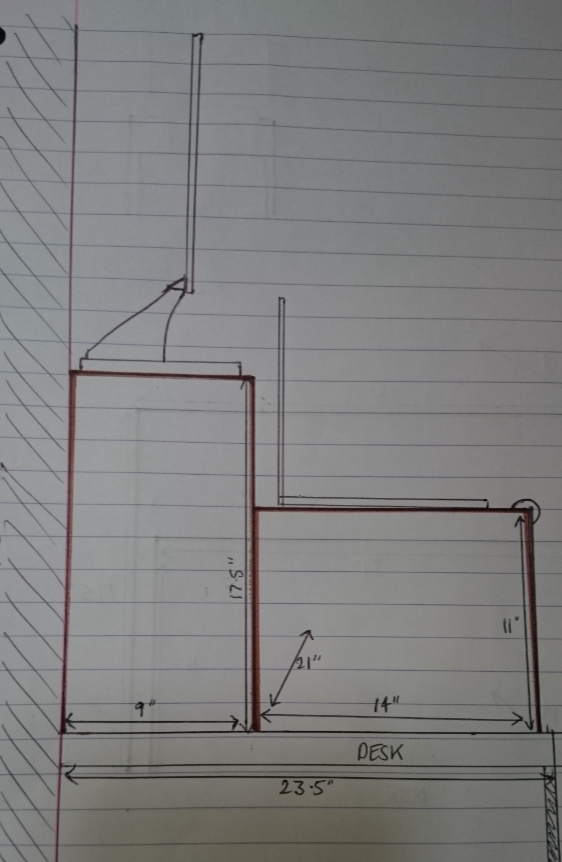 17.5"
11"
21"
9"
14"
DESK
23.5"